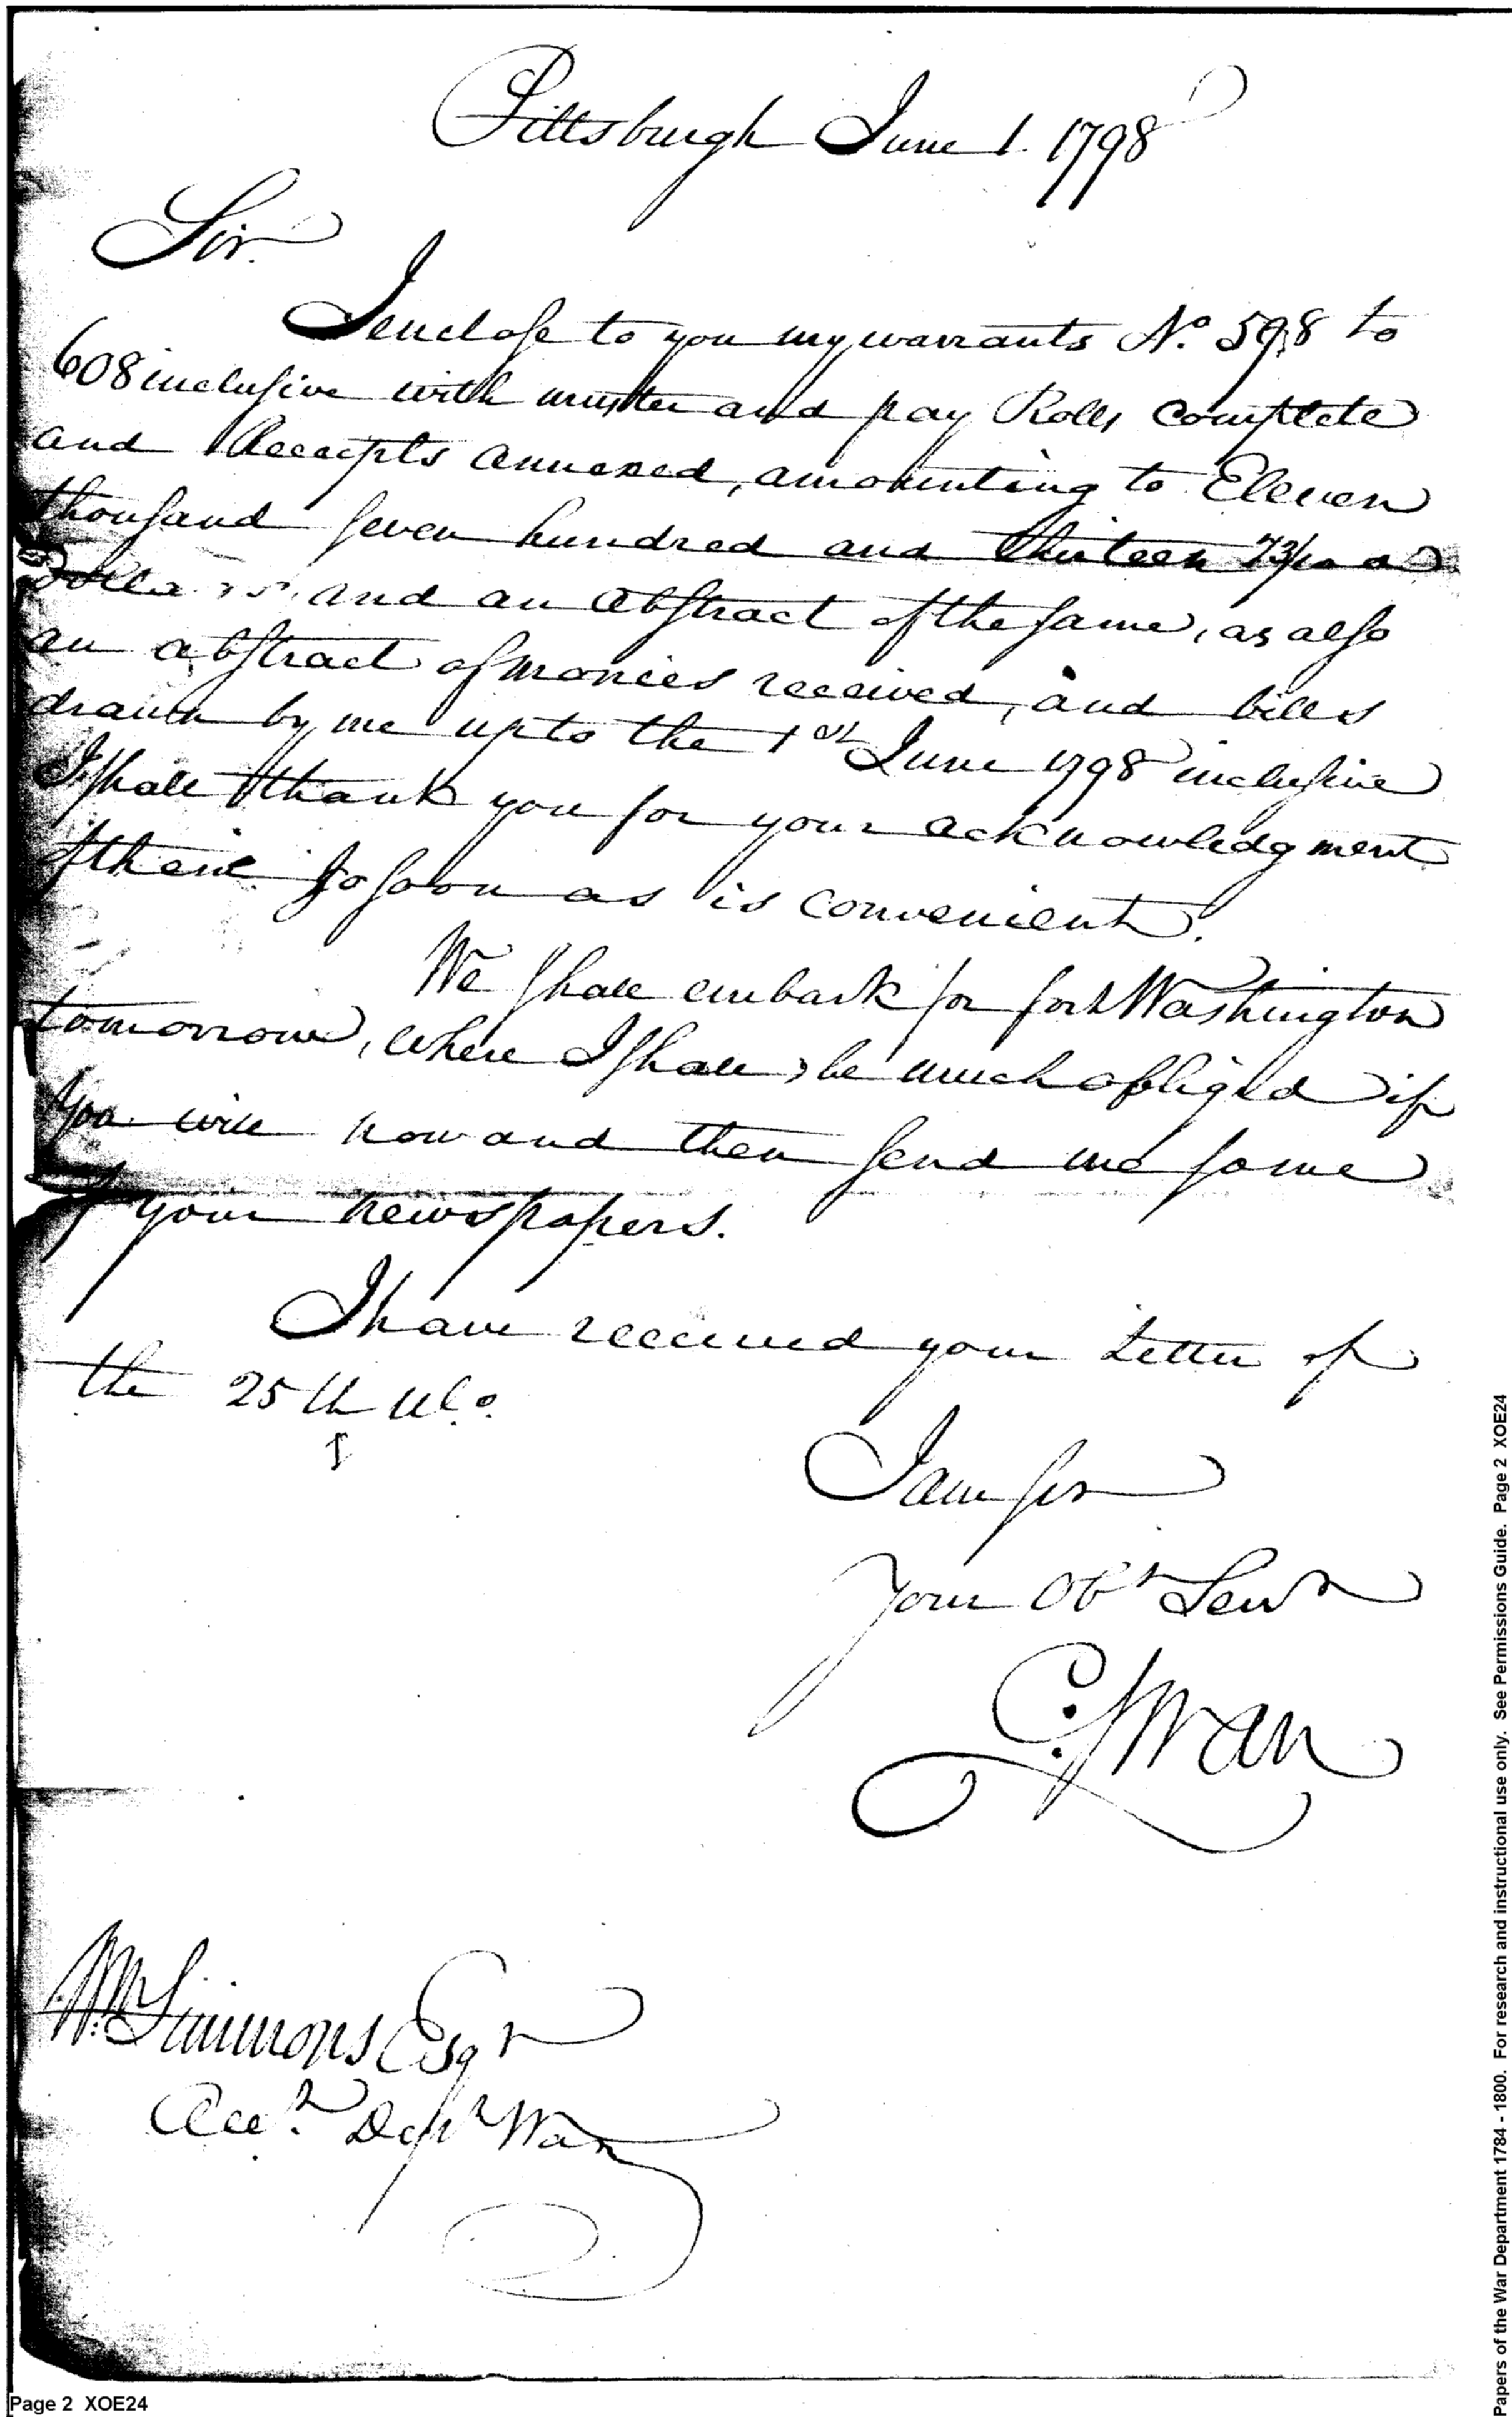 Pittsburgh June 1. 1798
Sir.
I enclose to you my warrants No. 598 to
608 inclusive with muster and pay Rolls complete
and Receipts annexed, amounting to Eleven
thousand seven hundred and thirteen 73/100
Dollars, and an abstract of the same, as also
an abstract of monies received, and bills
drawn by me up to the 1st June 1798 inclusive
I shall thank you for your acknowledgment
of them so soon as is convenient.
We shall embark for fort Washington
tomorrow, where I shall be much obliged if
you will now and then send me some
of your newspapers.
I have received your Letter of
the 25th Ulo.
I am sir
your Obt Servt
C. Swan
Wm Simmons Esqr
Acct. Dept War
Page 2 XOE24
Papers of the War Department 1784 - 1800. For research and instructional use only. See Permissions Guide. Page 2 XOE24